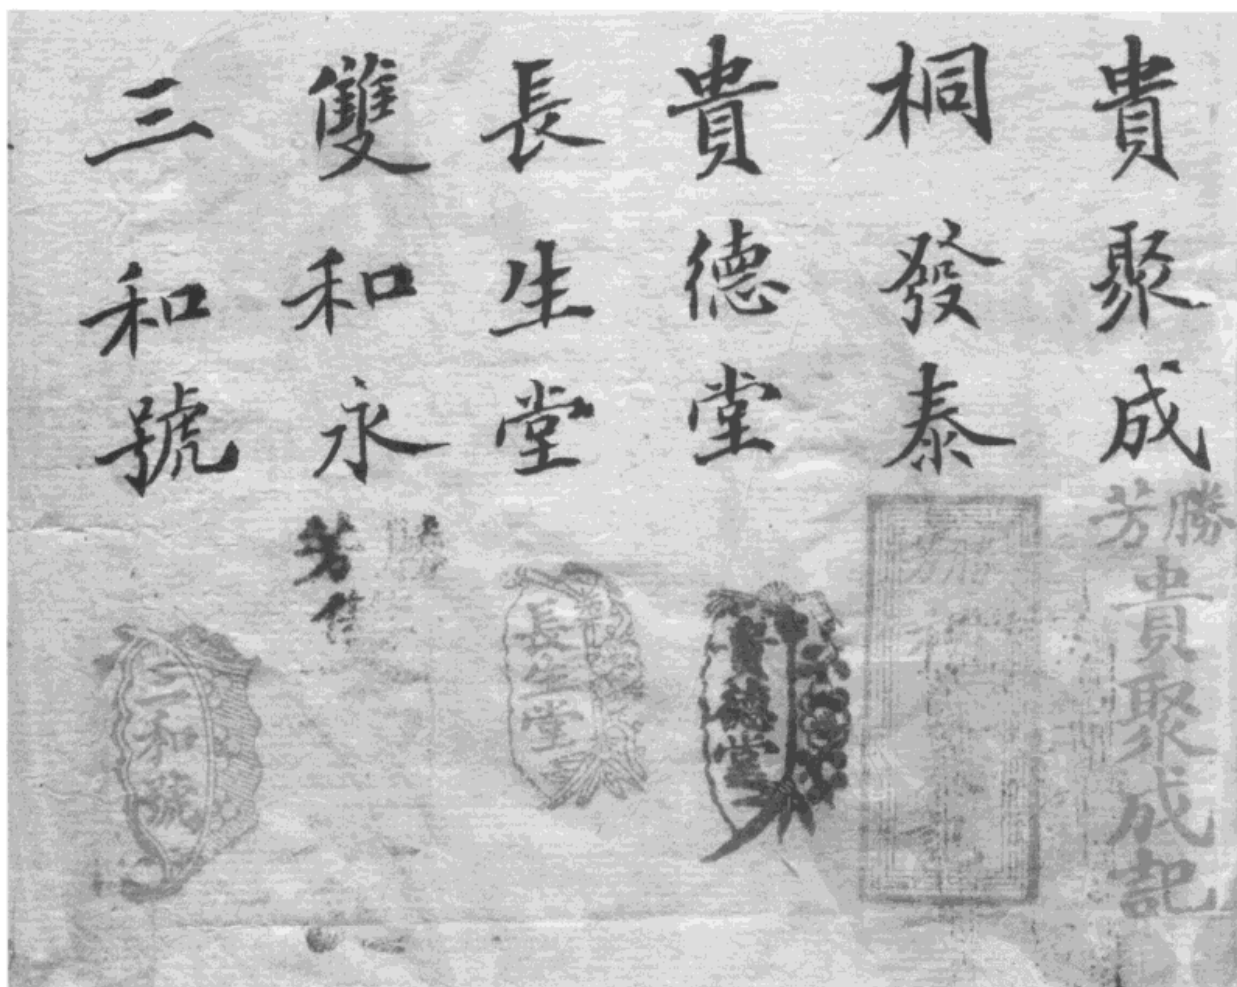 貴聚成
勝芳
貴聚成記
桐發泰
貴德堂
貴德堂
長生堂
長生堂
雙和永
勝芳
三和號
三和號